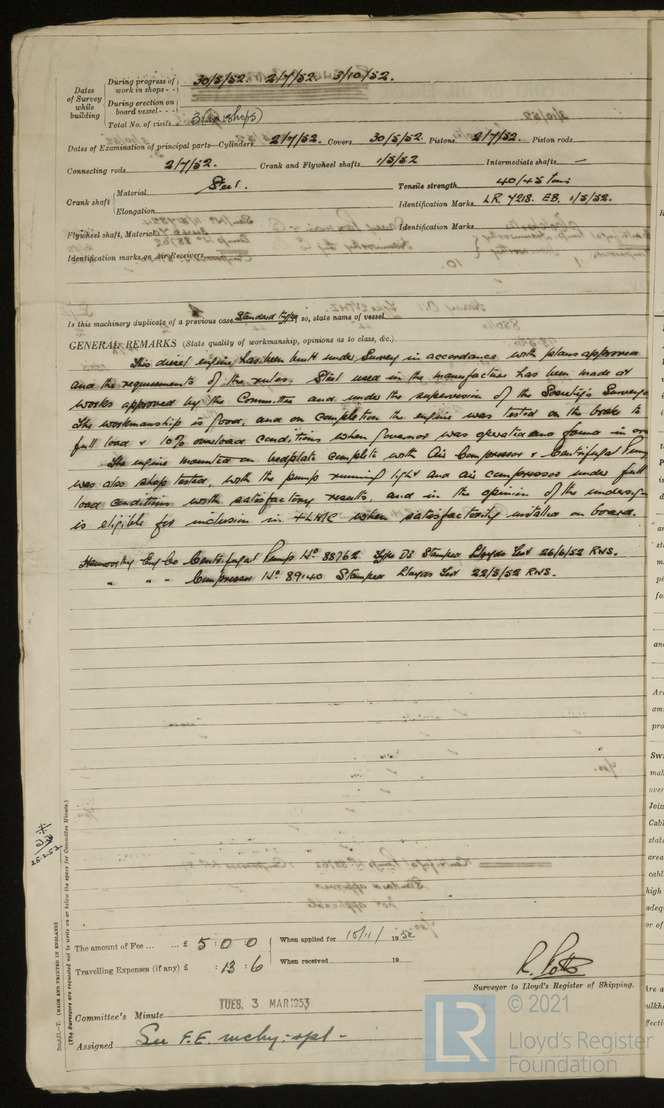 Dates of Survey while building
During progress of work in shops - - 30/5/52. 2/7/52. 3/10/52.
During erection on board vessel - - -
Total No. of visits 3 (in shops)
Dates of Examination of principal parts—Cylinders 2/7/52. Covers 30/5/52. Pistons 2/7/52. Piston rods
Connecting rods 2/7/52. Crank and Flywheel shafts 1/5/52 Intermediate shafts —
Crank shaft Material Steel. Tensile strength 40/45 tons
Elongation Identification Marks LR 4218. EB. 1/5/52.
Flywheel shaft, Material Identification Marks
Identification marks on Air Receivers
Is this machinery duplicate of a previous case Standard type If so, state name of vessel
GENERAL REMARKS (State quality of workmanship, opinions as to class, &c.)
This diesel engine has been built under Survey in accordance with plans approved
and the requirements of the rules. Steel used in the manufacture has been made at
works approved by the Committee and under the supervision of the Society's Surveyo
The workmanship is good, and on completion the engine was tested on the brake to
full load & 10% overload conditions when governor was operated and found in or
The engine mounted on bedplate complete with Air Compressor & Centrifugal Pump
was also shop tested, with the pump running light and air compressor under full
load conditions with satisfactory results, and in the opinion of the undersign
is eligible for inclusion in +LMC when satisfactorily installed on board.
Hamworthy Eng Co Centrifugal Pump No 88762 Type D3 Stamped Lloyds Test 26/6/52 RWS.
" " " Compressor No 89140 Stamped Lloyds Test 22/5/52 RWS.
(The Surveyors are requested not to write on or below the space for Committee Minute.)
(MADE AND PRINTED IN ENGLAND)
The amount of Fee ... ... £ 5 : 0 : 0 When applied for 18/11/ 19 52
Travelling Expenses (if any) £ : 13 : 6 When received 19
R. Potts
Surveyor to Lloyd's Register of Shipping.
TUES. 3 MAR 1953
Committee's Minute
Assigned See F.E. mchy. rpt -
LR © 2021
Lloyd's Register
Foundation